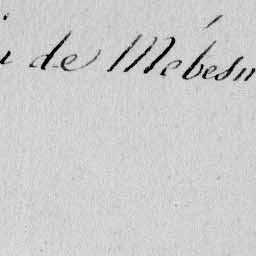 de Mébesn